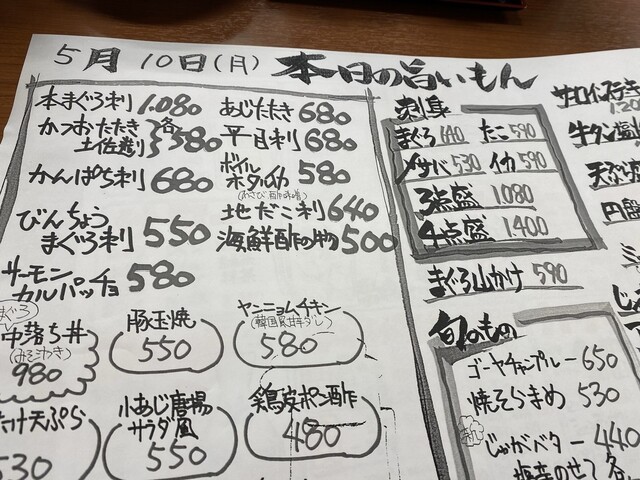 5月10日(月) 本日の旨いもん
本まぐろ刺 1.080
かつおたたき
土佐造り 各580
かんぱち刺 680
びんちょう
まぐろ刺 550
サーモン
カルパッチョ 580
あじたたき 680
平目刺 680
ボイル
ホタルイカ 580
(わさび 酢味噌)
地だこ刺 640
海鮮酢の物 500
刺身
まぐろ 640 たこ 590
〆サバ 530 イカ 590
3点盛 1.080
4点盛 1400
まぐろ山かけ 590
旬のもの
ゴーヤチャンプルー 650
焼そらまめ 530
じゃがバター 440
塩辛のせて 各
まぐろ
中落ち丼
980
豚玉焼
550
ヤンニョムチキン
(韓国風甘辛ダレ)
580
け天ぷら
530
小あじ唐揚
サラダ風
550
鶏皮ポン酢
480
サーロインステーキ
120
牛タン塩
天ぷら
円盤